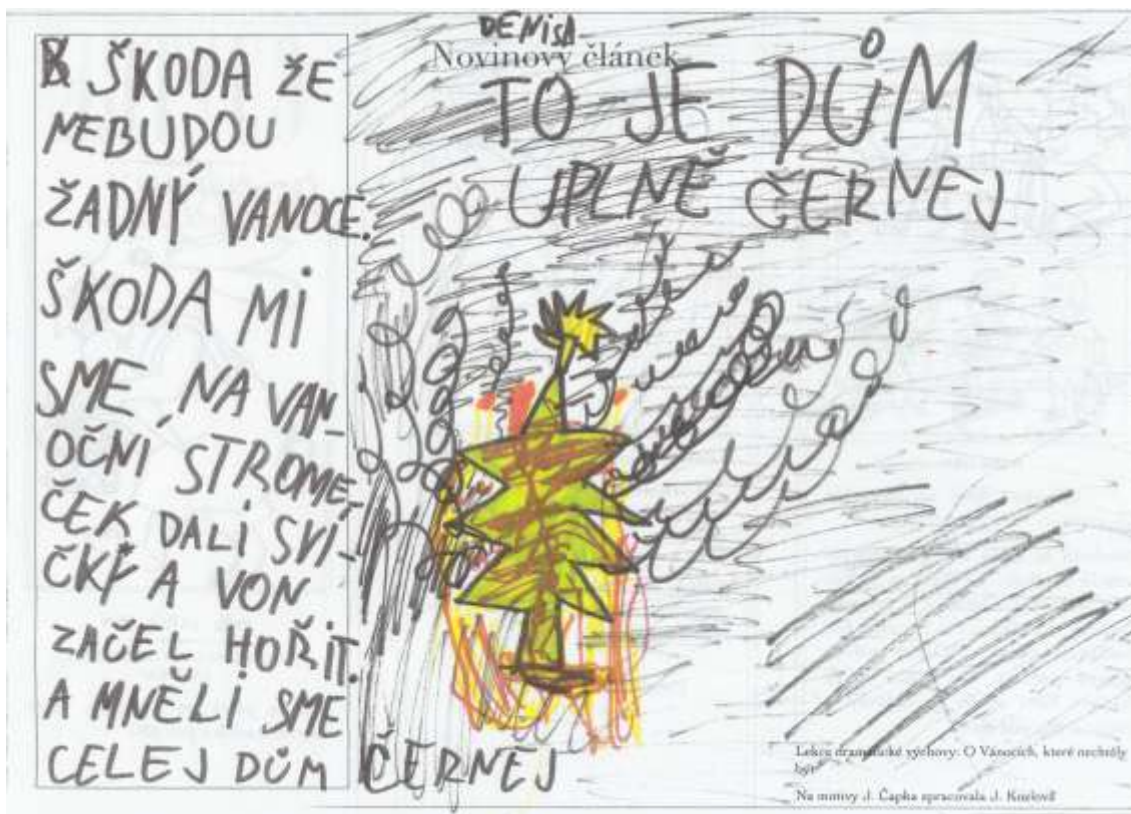 ŠKODA ŽE
NEBUDOU
ŽADNÝ VANOCE.
ŠKODA MI
SME NA VAN-
OČNÍ STROME,
ČEK DALI SVÍ-
ČKY A VON
ZAČEL HOŘIT.
A MNĚLI SME
CELEJ DŮM ČERNEJ
DENISA
Novinový článek
TO JE DŮM
UPLNĚ ČERNEJ
Lekce dramatické výchovy: O Vánocích, které nechtěly
být
Na motivy J. Čapka zpracovala J. Kozlová